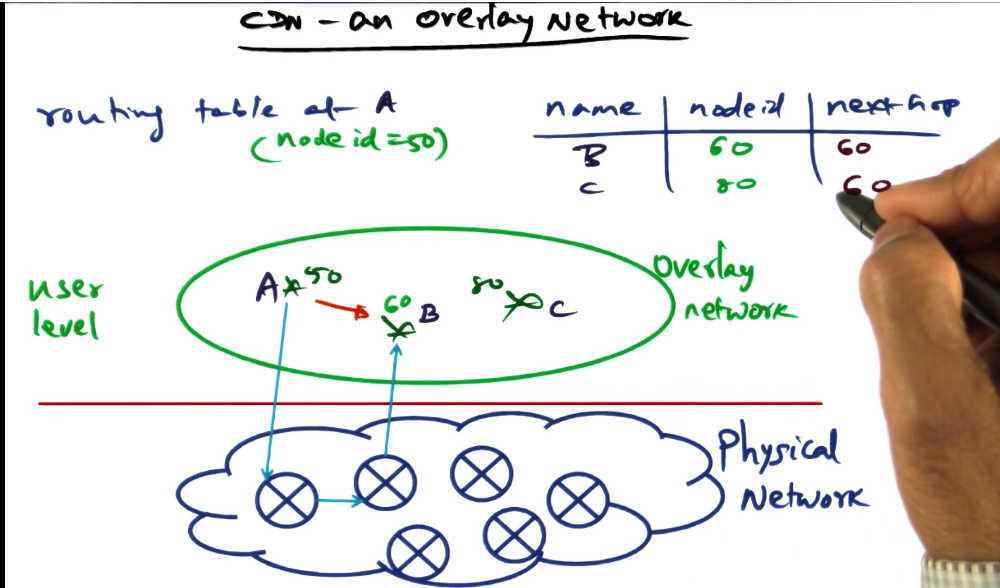 CDN - an overlay network
routing table at A
(node id = 50)
name nodeid next hop
B 60 60
C 80 60
user level
A 50
60 B
80 C
overlay network
Physical Network